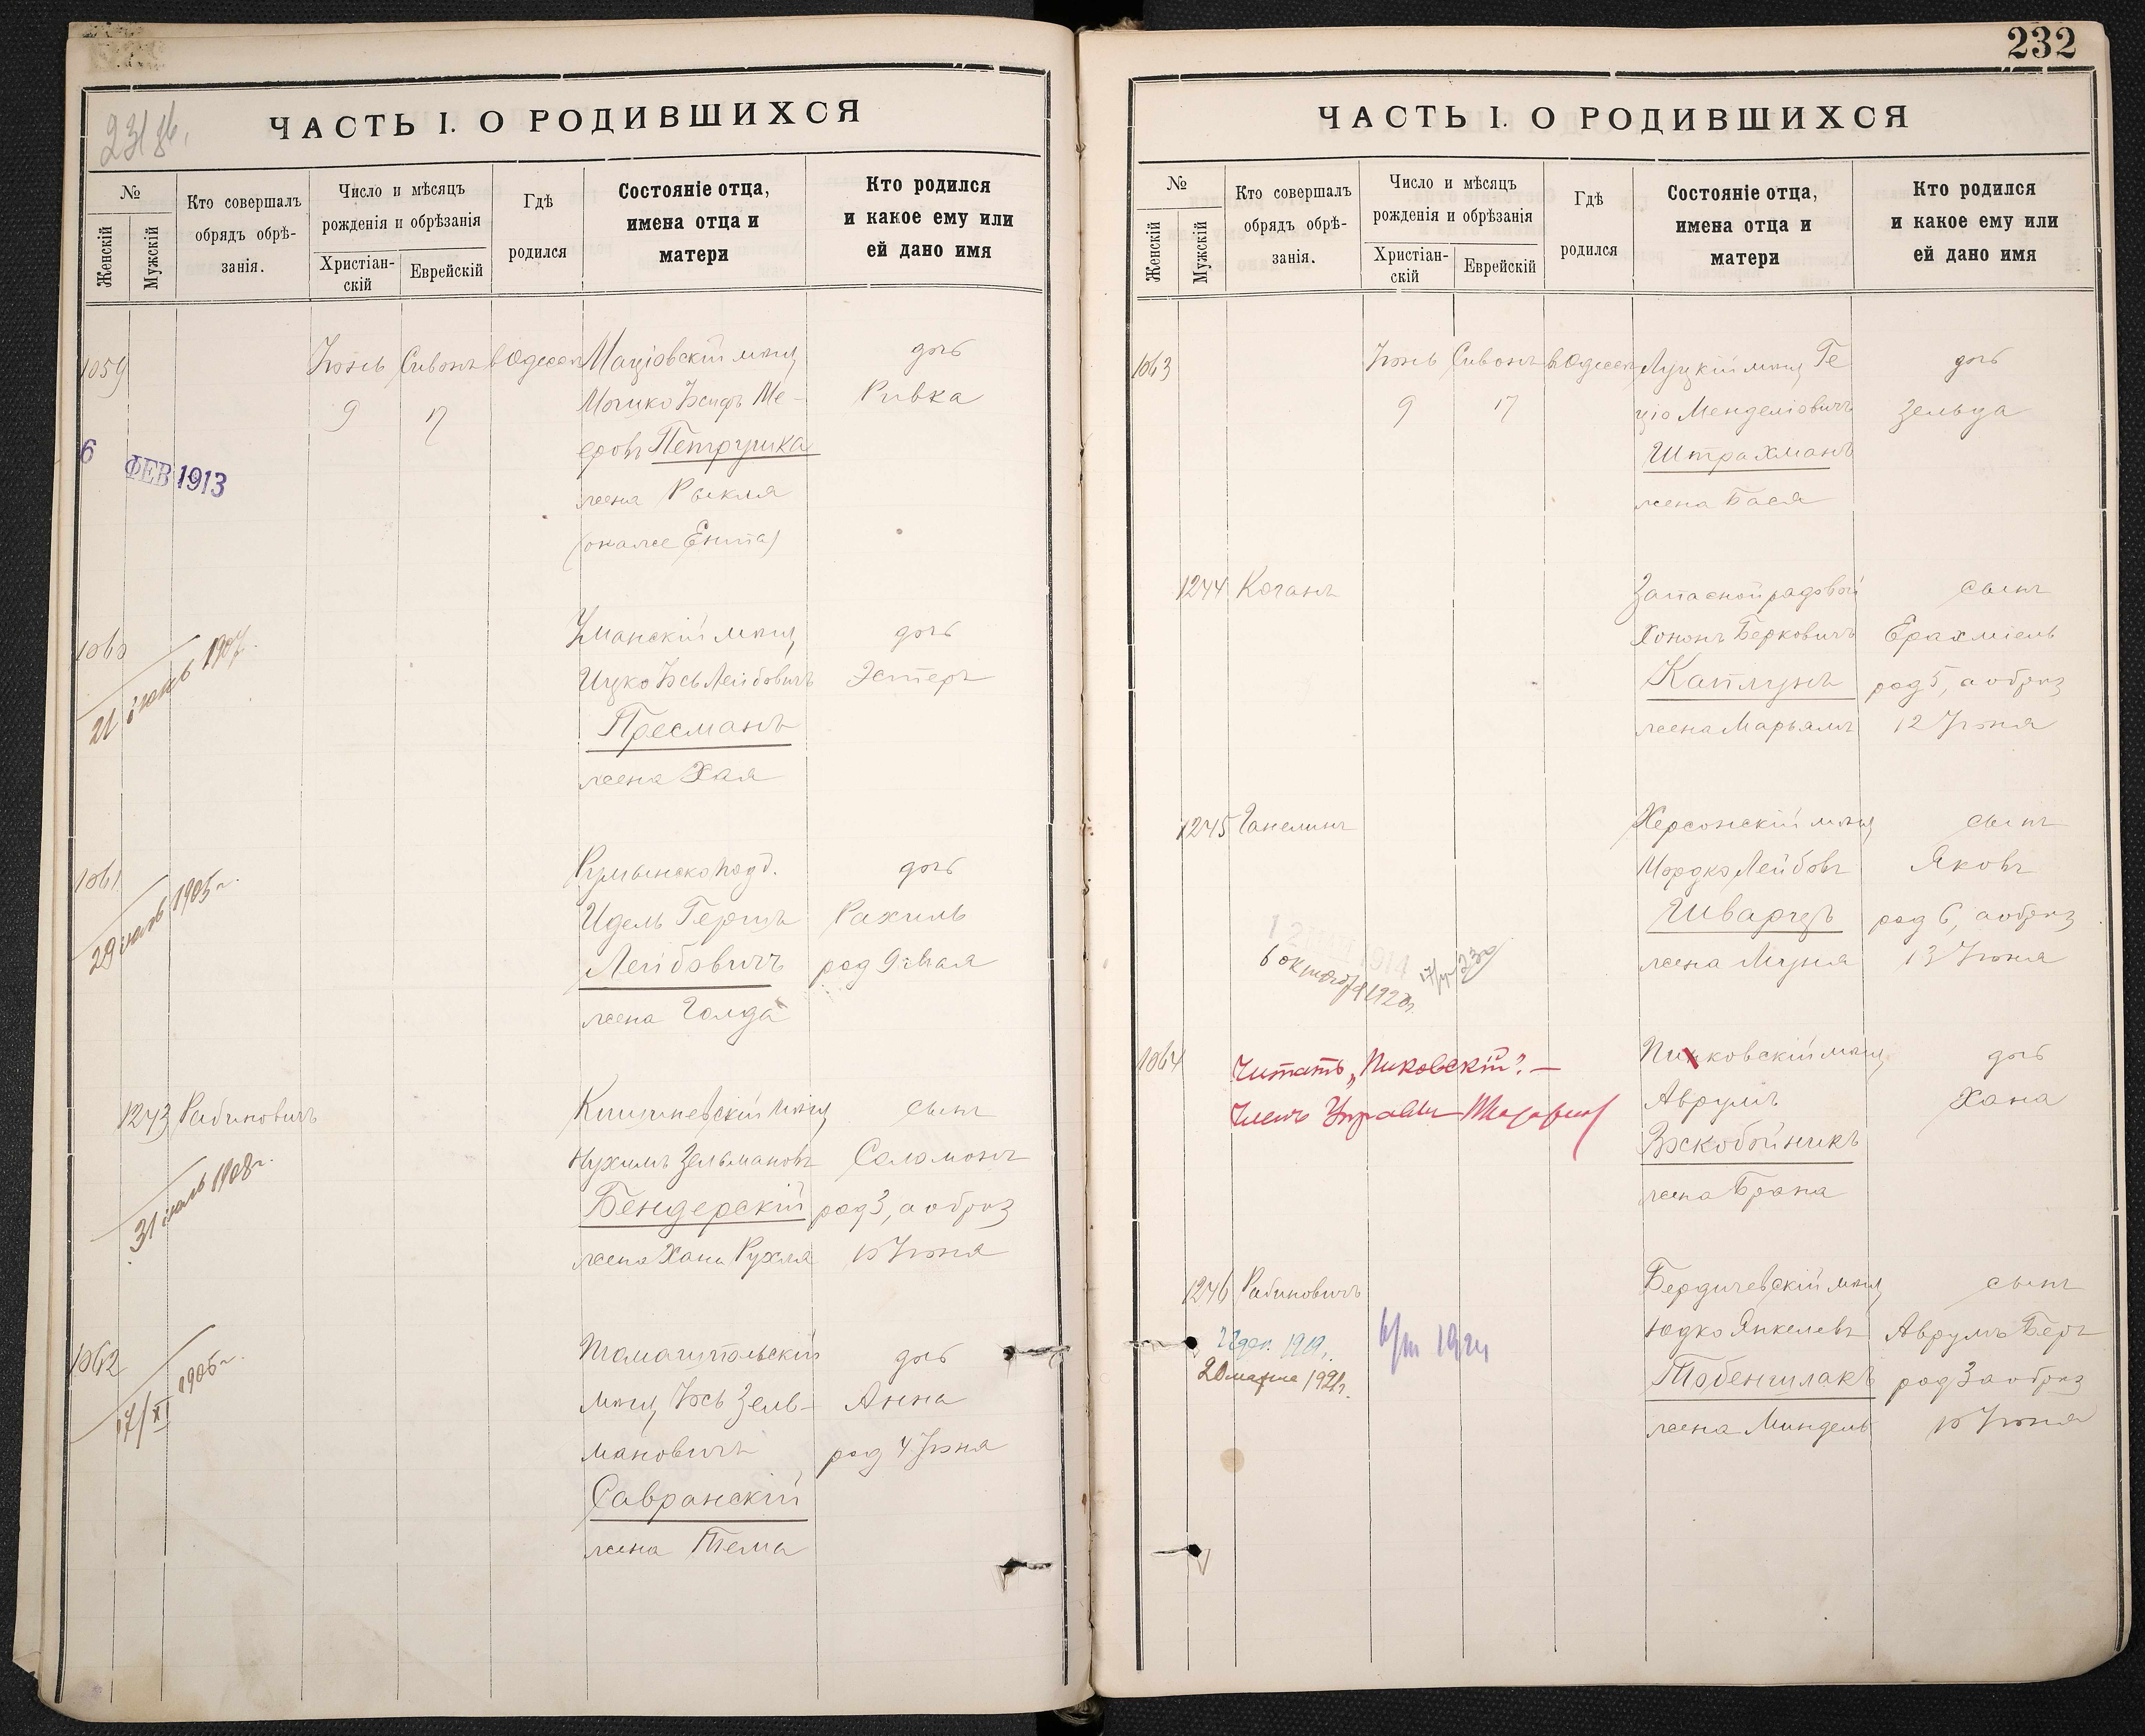 231 об.
ЧАСТЬ I. О РОДИВШИХСЯ
№
Женскій
Мужскій
Кто совершалъ
обрядъ обрѣ-
занія.
Число и мѣсяцъ
рожденія и обрѣзанія
Христіан-
скій
Еврейскій
Гдѣ
родился
Состояніе отца,
имена отца и
матери
Кто родился
и какое ему или
ей дано имя
1059
Іюнь
9
Сивонъ
17
в Одессѣ
Маціовскій мѣщ
Мошко Іосифъ Ме-
еровъ Петрушка
жена Рыкля
(она же Ента)
дочь
Ривка
6 ФЕВ 1913
1060
21 1907
Уманскій мѣщ
Ицко Іось Лейбовичъ
Пресманъ
жена Хая
дочь
Эстеръ
1061
29 1905 г.
Румынско под.
Идель Гершъ
Лейбовичъ
жена Голда
дочь
Рахиль
род 9 Мая
1243
Рабиновичъ
31 1908 г.
Кишиневскій мѣщ
Нухимъ Зельмановъ
Бендерскій
жена Хана Рухля
сынъ
Соломонъ
род 3, а обрѣз
10 Іюня
1062
17/XI 1906 г.
Томашпольскій
мѣщ Іось Зель-
мановичъ
Савранскій
жена Тема
дочь
Анна
род 4 Іюня
232
ЧАСТЬ I. О РОДИВШИХСЯ
№
Женскій
Мужскій
Кто совершалъ
обрядъ обрѣ-
занія.
Число и мѣсяцъ
рожденія и обрѣзанія
Христіан-
скій
Еврейскій
Гдѣ
родился
Состояніе отца,
имена отца и
матери
Кто родился
и какое ему или
ей дано имя
1063
Іюнь
9
Сивонъ
17
в Одессѣ
Луцкій мѣщ Ге
ціо Менделіовичъ
Штрахманъ
жена Бася
дочь
Зельда
1244
Коганъ
Запасной рядовой
Хононъ Берковичъ
Каплунъ
жена Марьямъ
сынъ
Ерахміель
род 5, а обрѣз
12 Іюня
1245
Ганелинъ
6 октября 1920 г.
Херсонскій мѣщ
Мордко Лейбовъ
Шварцъ
жена Муня
сынъ
Яковъ
род 6, а обрѣз
13 Іюня
1064
Читать „Пиковскій". —
Членъ Управы
Пиковскій мѣщ
Аврумъ
Воскобойникъ
жена Брана
дочь
Хана
1246
Рабиновичъ
22 дек. 1919 г.
20 марта 1921 г.
6/III 1924
Бердичевскій мѣщ
Юдко Янкелевъ
Тобеншлакъ
жена Миндель
сынъ
Аврумъ Беръ
род 3 а обрѣз
10 Іюня